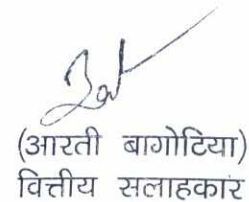 (आरती बागोटिया)
वित्तीय सलाहकार